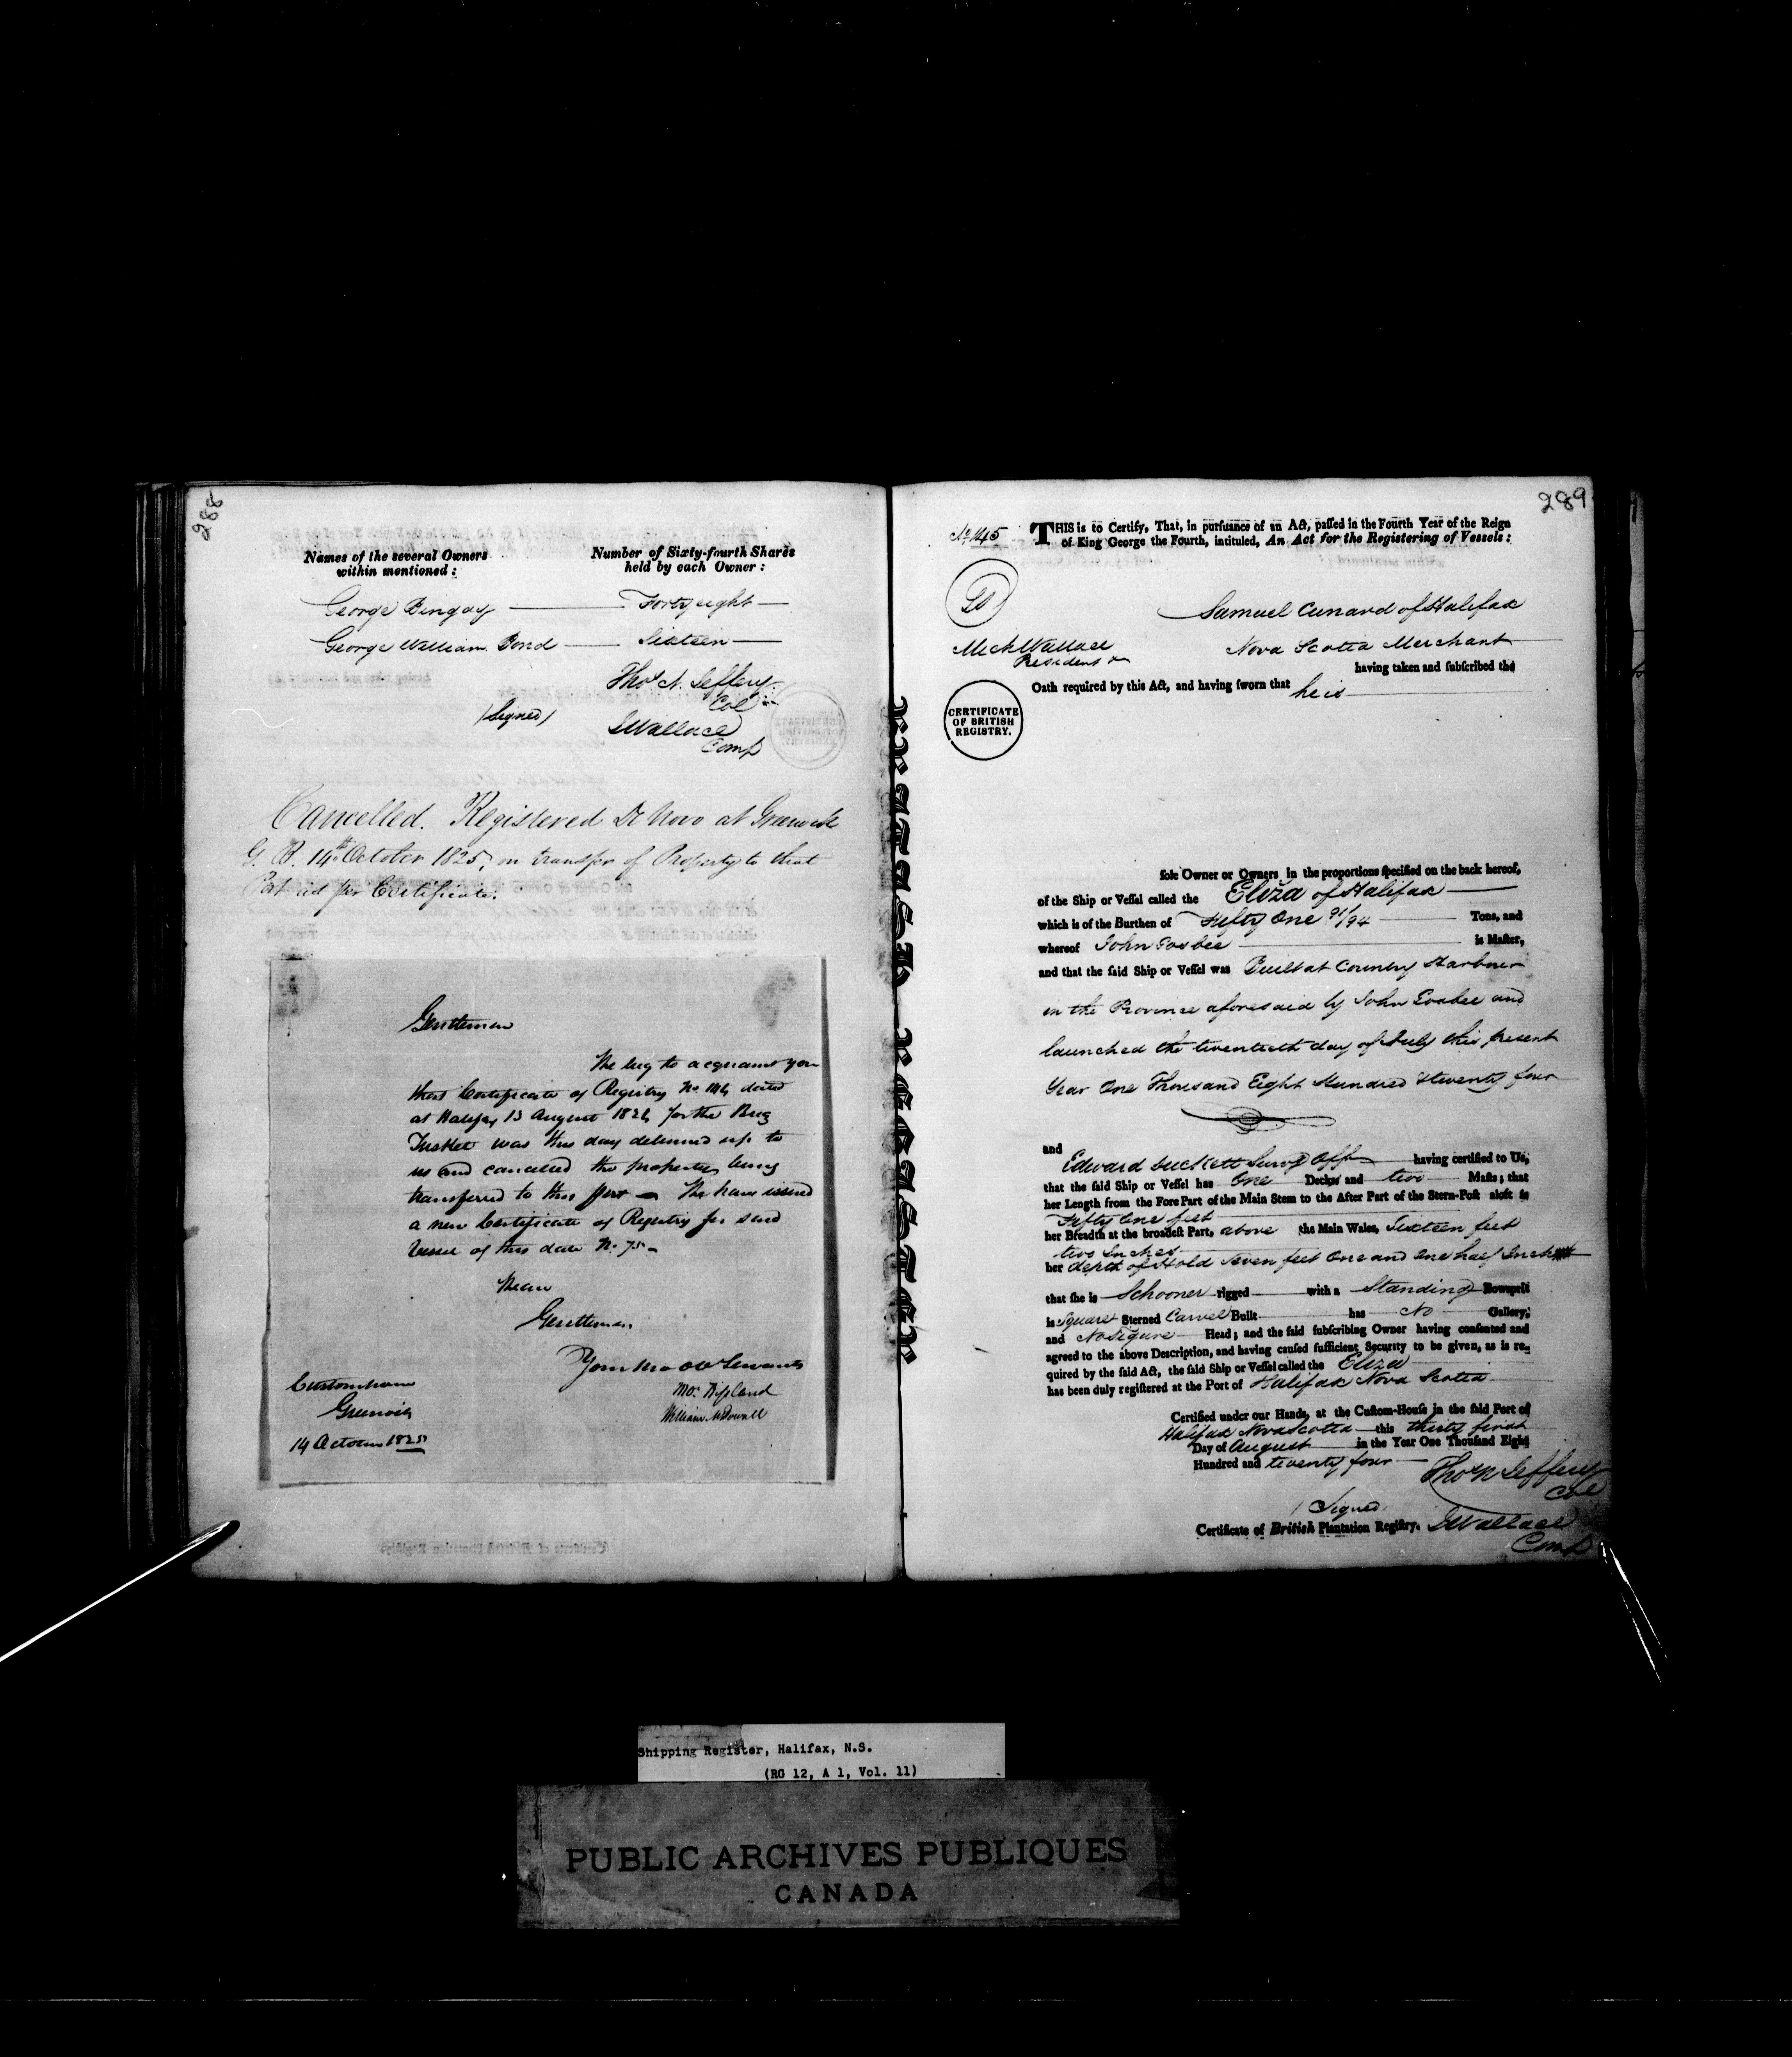 288
Names of the several Owners
within mentioned :
Number of Sixty-fourth Shares
held by each Owner :
George Bingay Forty eight
George William Bond Sixteen
Thos N. Jeffery
Col
(Signed)
J Wallace
Comp
Cancelled. Registered De Novo at Greenock
G. B. 14th October 1825, on transfer of Property to that
Port as per Certificate.
Gentlemen
We beg to acquaint you
that Certificate of Registry No. 144 dated
at Halifax 13 August 1824 for the Brig
Tusket was this day delivered up to
us and cancelled the property being
transferred to this port - We have issued
a new Certificate of Registry for said
Vessel of this date No. 75 -
We are
Gentlemen
Your Mo. Ob. Servants
William McDowall
Customhouse
Greenock
14 October 1825
289
No. 145
THIS is to Certify, That, in pursuance of an Act, passed in the Fourth Year of the Reign
of King George the Fourth, intituled, An Act for the Registering of Vessels :
Samuel Cunard of Halifax
Mich Wallace
President
Nova Scotia Merchant
having taken and subscribed the
Oath required by this Act, and having sworn that he is
CERTIFICATE
OF BRITISH
REGISTRY.
REGISTER VESSELS
sole Owner or Owners in the proportions specified on the back hereof,
of the Ship or Vessel called the Eliza of Halifax
which is of the Burthen of Fifty One 91/94 Tons, and
whereof John is Master,
and that the said Ship or Vessel was Built at Country Harbour
in the Province aforesaid by John and
launched the twentieth day of July this present
Year One Thousand Eight Hundred & twenty four
and
Edward Suckett Surv'g Off having certified to Us,
that the said Ship or Vessel has One Decks and two Masts; that
her Length from the Fore Part of the Main Stem to the After Part of the Stern-Post aloft is
Fifty One feet
her Breadth at the broadest Part, above the Main Wales, Sixteen feet
two Inches
her depth of Hold Seven feet One and One half Inch
that she is Schooner rigged with a Standing Bowsprit
is Square Sterned Carvel Built has No Gallery;
and No Figure Head; and the said subscribing Owner having consented and
agreed to the above Description, and having caused sufficient Security to be given, as is re-
quired by the said Act, the said Ship or Vessel called the Eliza
has been duly registered at the Port of Halifax Nova Scotia
Certified under our Hands, at the Custom-House in the said Port of
Halifax Nova Scotia this thirty first
Day of August in the Year One Thousand Eight
Hundred and twenty four
Thos N Jeffery
Col
(Signed)
Certificate of British Plantation Registry. J Wallace
Comp
Shipping Register, Halifax, N.S.
(RG 12, A 1, Vol. 11)
PUBLIC ARCHIVES PUBLIQUES
CANADA